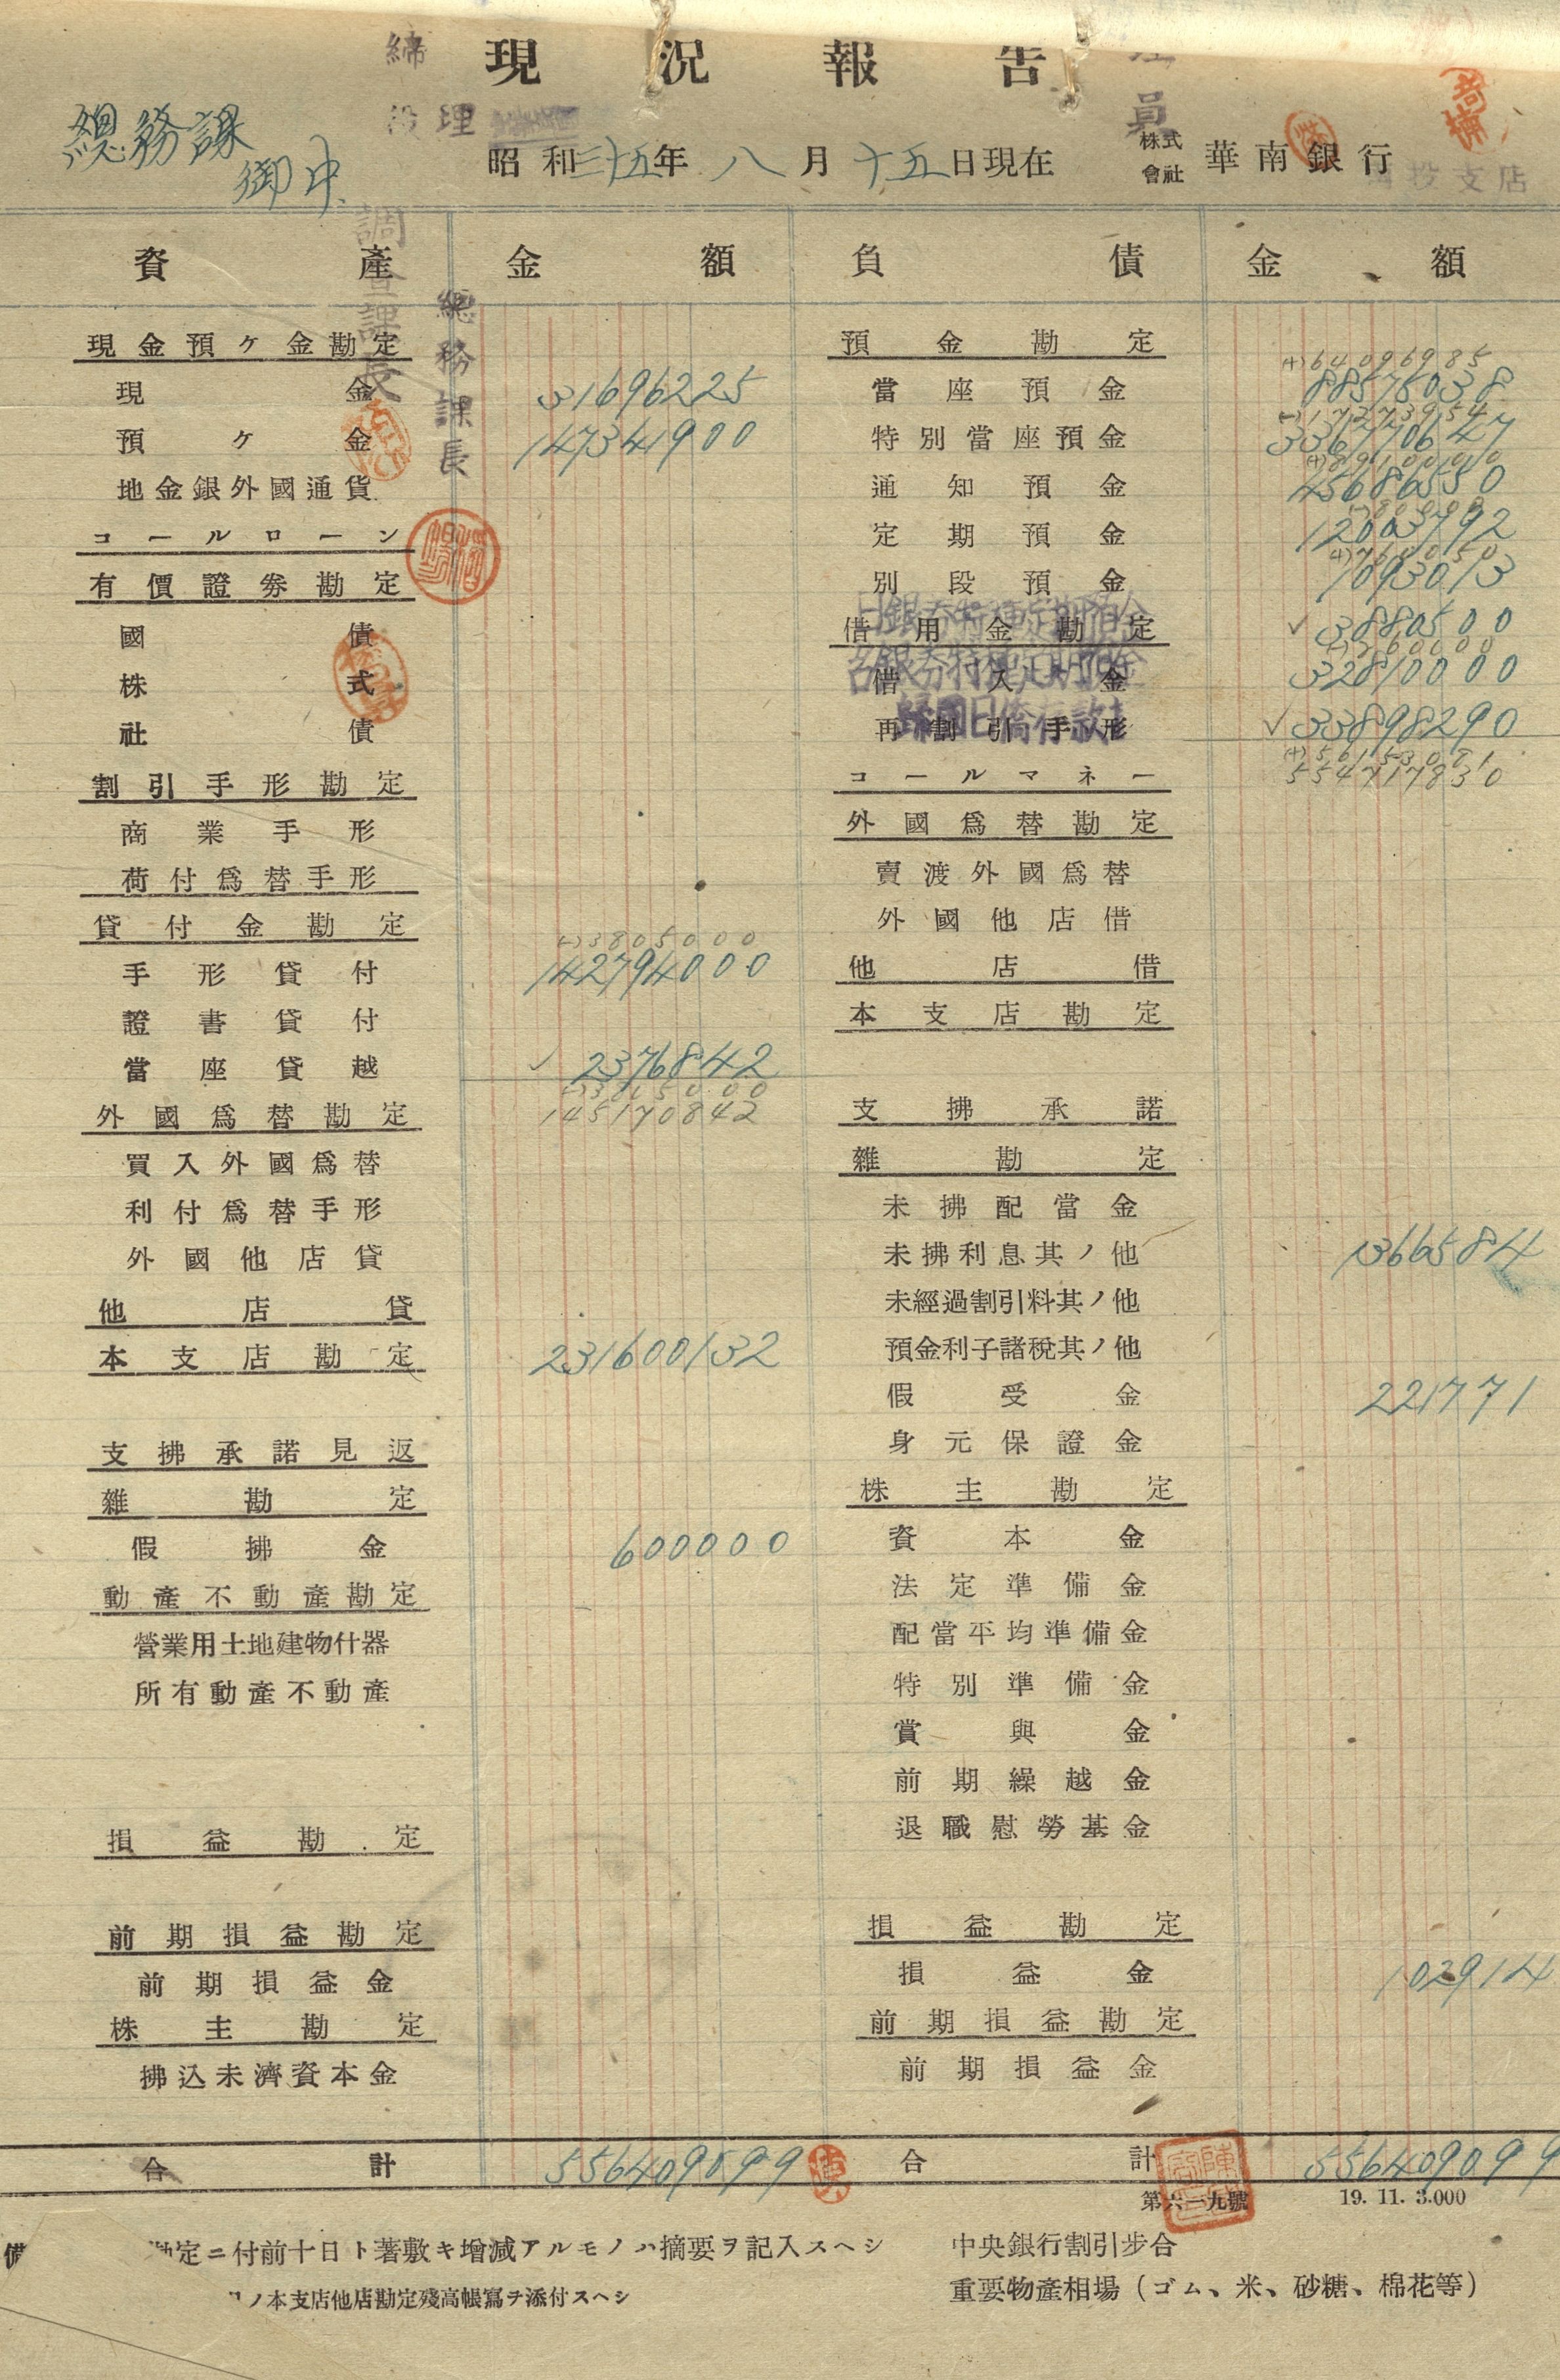 現況報告
總務課
御中
昭和三十五年八月十五日現在
株式會社 華南銀行
南投支店
調査課長
總務課長
資產 金額 負債 金額
現金預ケ金勘定
現金 31696225
預ケ金 147341900
地金銀外國通貨
コールローン
有價證券勘定
國債
株式
社債
割引手形勘定
商業手形
荷付爲替手形
貸付金勘定
(-)3805000
手形貸付 142794000
證書貸付
當座貸越 ✓ 2376842
(-)3805000
145170842
外國爲替勘定
買入外國爲替
利付爲替手形
外國他店貸
他店貸
本支店勘定 231600132
支拂承諾見返
雜勘定
假拂金 600000
動產不動產勘定
營業用土地建物什器
所有動產不動產
損益勘定
前期損益勘定
前期損益金
株主勘定
拂込未濟資本金
合計 556409099
預金勘定
(+)64096985
當座預金 88575038
(-)17273954
特別當座預金 336770647
通知預金 45686550
定期預金 12003792
別段預金 1093013
日銀券特種定期預金 ✓ 3880500
台銀券特種定期預金 32810000
歸國日僑存款 ✓ 33898290
554717830
借用金勘定
借入金
再割引手形
コールマネー
外國爲替勘定
賣渡外國爲替
外國他店借
他店借
本支店勘定
支拂承諾
雜勘定
未拂配當金
未拂利息其ノ他 1366584
未經過割引料其ノ他
預金利子諸稅其ノ他
假受金 221771
身元保證金
株主勘定
資本金
法定準備金
配當平均準備金
特別準備金
賞與金
前期繰越金
退職慰勞基金
損益勘定
損益金 102914
前期損益勘定
前期損益金
合計 556409099
第六一九號 19. 11. 3.000
備 勘定ニ付前十日ト著敷キ增減アルモノハ摘要ヲ記入スヘシ
ノ本支店他店勘定殘高帳寫チ添付スヘシ
中央銀行割引步合
重要物產相場（ゴム、米、砂糖、棉花等）